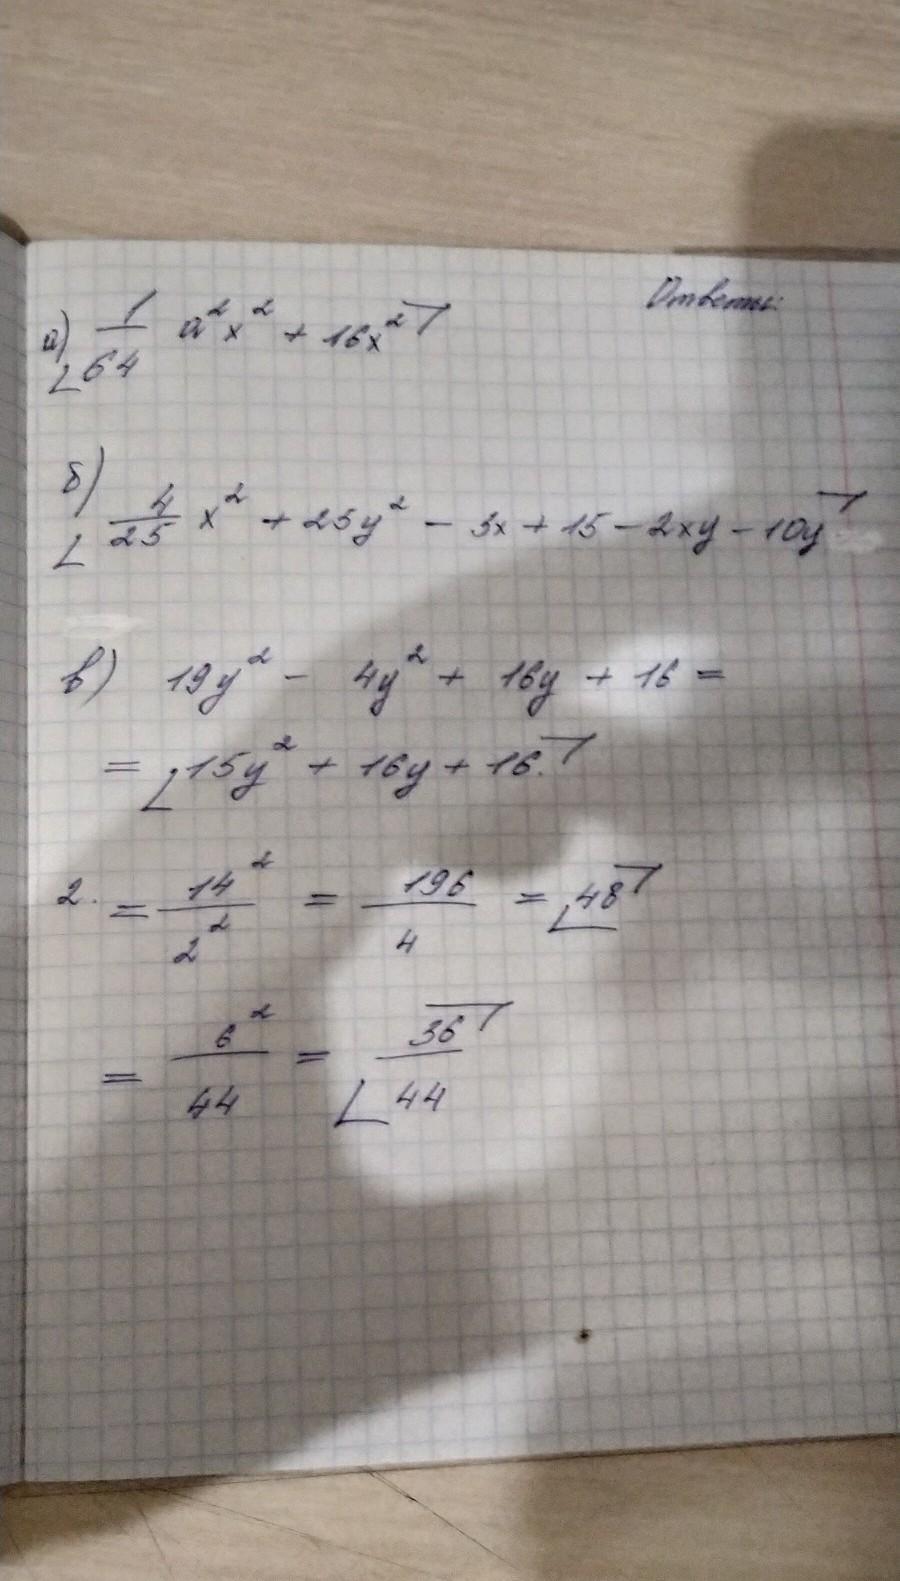 Ответы:
а) 1/64 a²x² + 16x²
б) 4/25 x² + 25y² - 3x + 15 - 2xy - 10y
в) 19y² - 4y² + 16y + 16 =
= 15y² + 16y + 16.
2. = 14²/2² = 196/4 = 48
= 6²/44 = 36/44